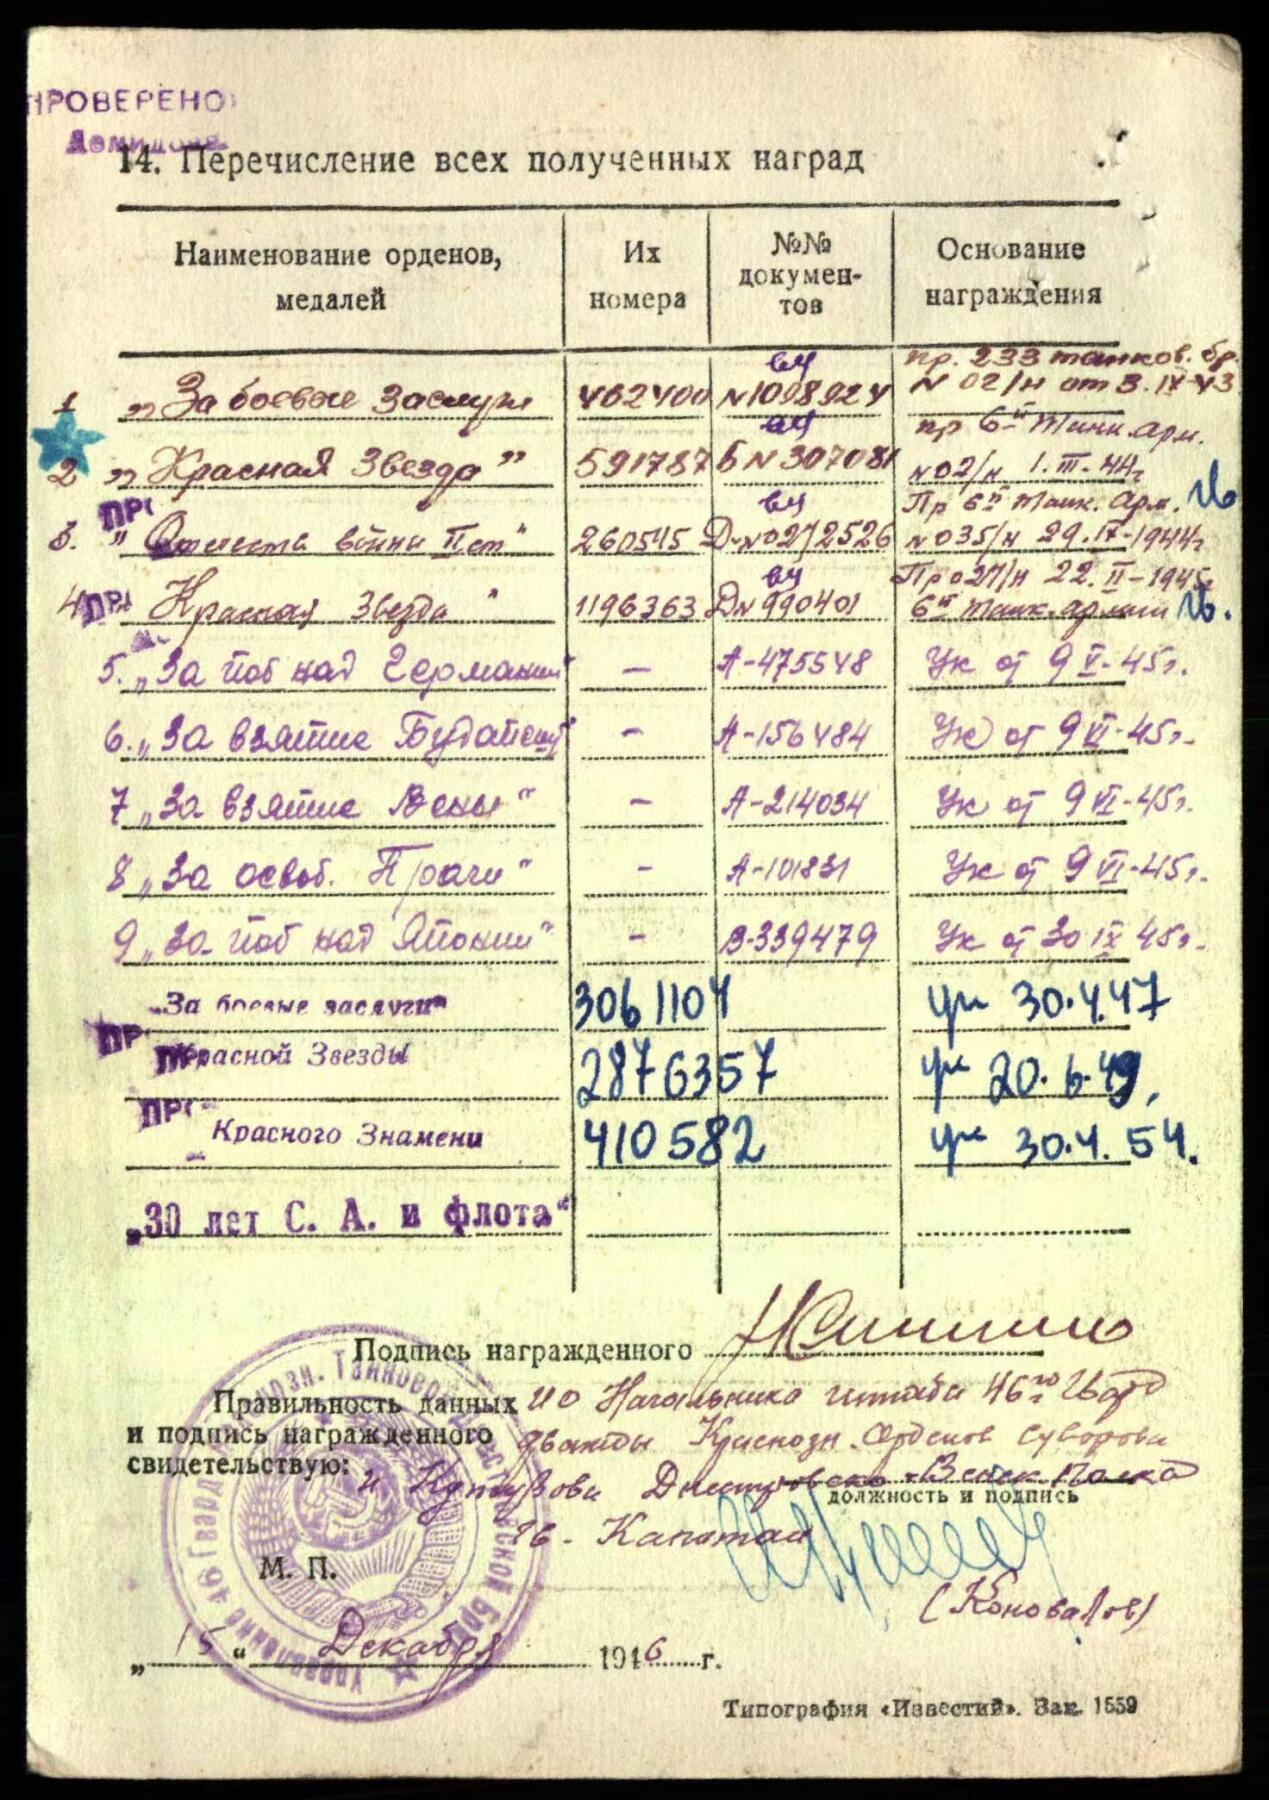 ПРОВЕРЕНО
14. Перечисление всех полученных наград
Наименование орденов, медалей
Их номера
№№ докумен-
тов
Основание награждения
1 „За боевые заслуги 462400 вч N 1098924 пр. 233 танков. бр. N 02/н от 3.IX-43
2 „Красная Звезда" 591787 вч Б N 307081 пр 6й Танк. арм. N 02/н 1.III.44г
3. „Отечеств войны II ст" 260545 вч Д-N 0272526 Пр 6й Танк. Арм. N 035/н 29.IX-1944г
4 Красная Звезда" 1196363 вч Д N 990401 Пр 027/н 22.II-1945г 6й танк. армии
5. „За поб над Германии" — А-475548 Ук от 9 V-45г.
6. „За взятие Будапешт" — А-156484 Ук от 9 VI-45г.
7 „За взятие Вены" — А-214034 Ук от 9 VI-45г.
8 „За освоб. Праги" — А-101831 Ук от 9 VI-45г.
9 „За поб над Японии" — В-339479 Ук от 30 IX 45г.
„За боевые заслуги" 3061104 ук 30.4.47
Красной Звезды 2876357 ук 20.6.49,
Красного Знамени 410582 ук 30.4.54.
„30 лет С. А. и флота"
Подпись награжденного
Правильность данных и подпись награжденного свидетельствую:
ИО Начальника штаба 46го Гвард
дважды Краснозн. Орденов Суворова
и Кутузова Днестровско-Венск Полка
должность и подпись
Гв. Капитан
М. П.
(Коновалов)
„15" Декабря 1946 г.
Типография «Известий». Зак. 1559